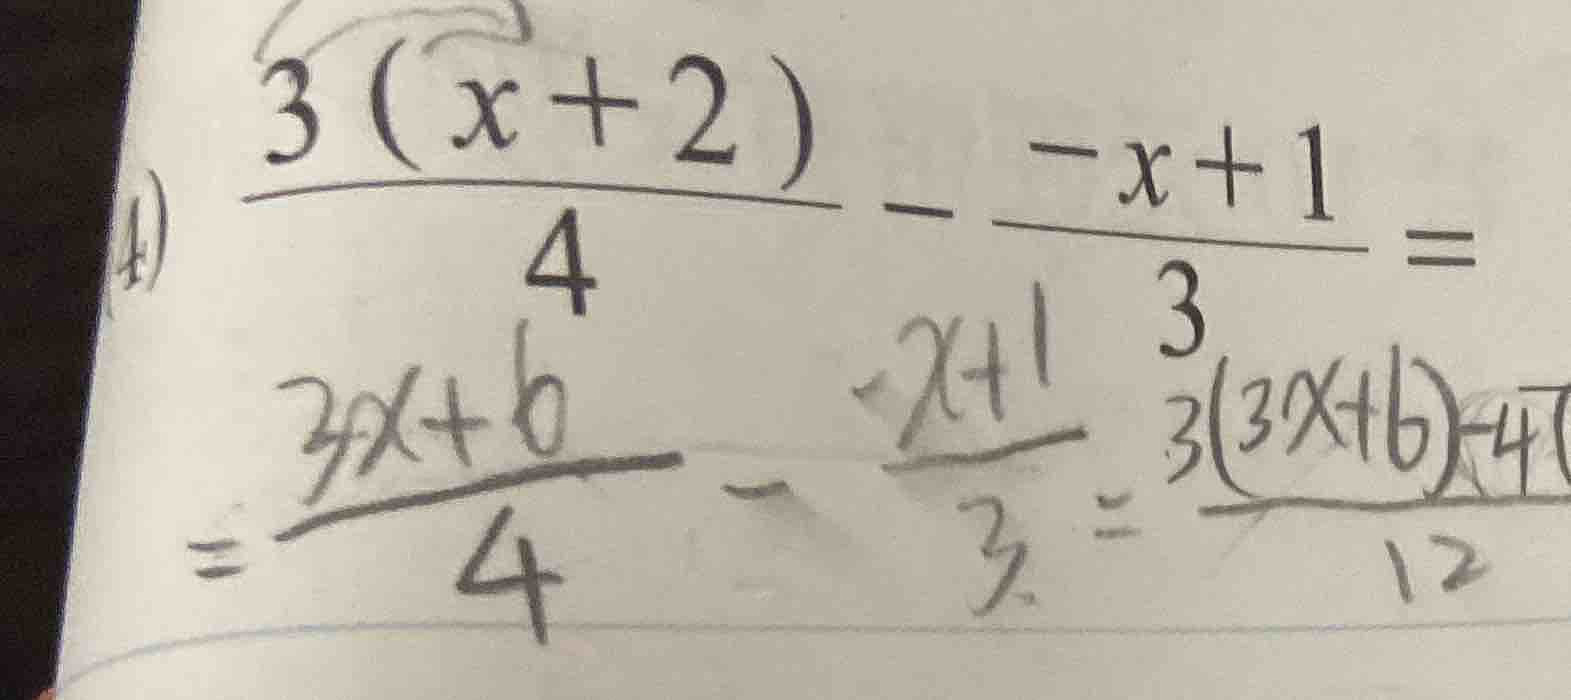 \frac{3(x+2)}{4} - \frac{-x+1}{3} =
= \frac{3x+6}{4} - \frac{-x+1}{3} = \frac{3(3x+6)-4(}{12}